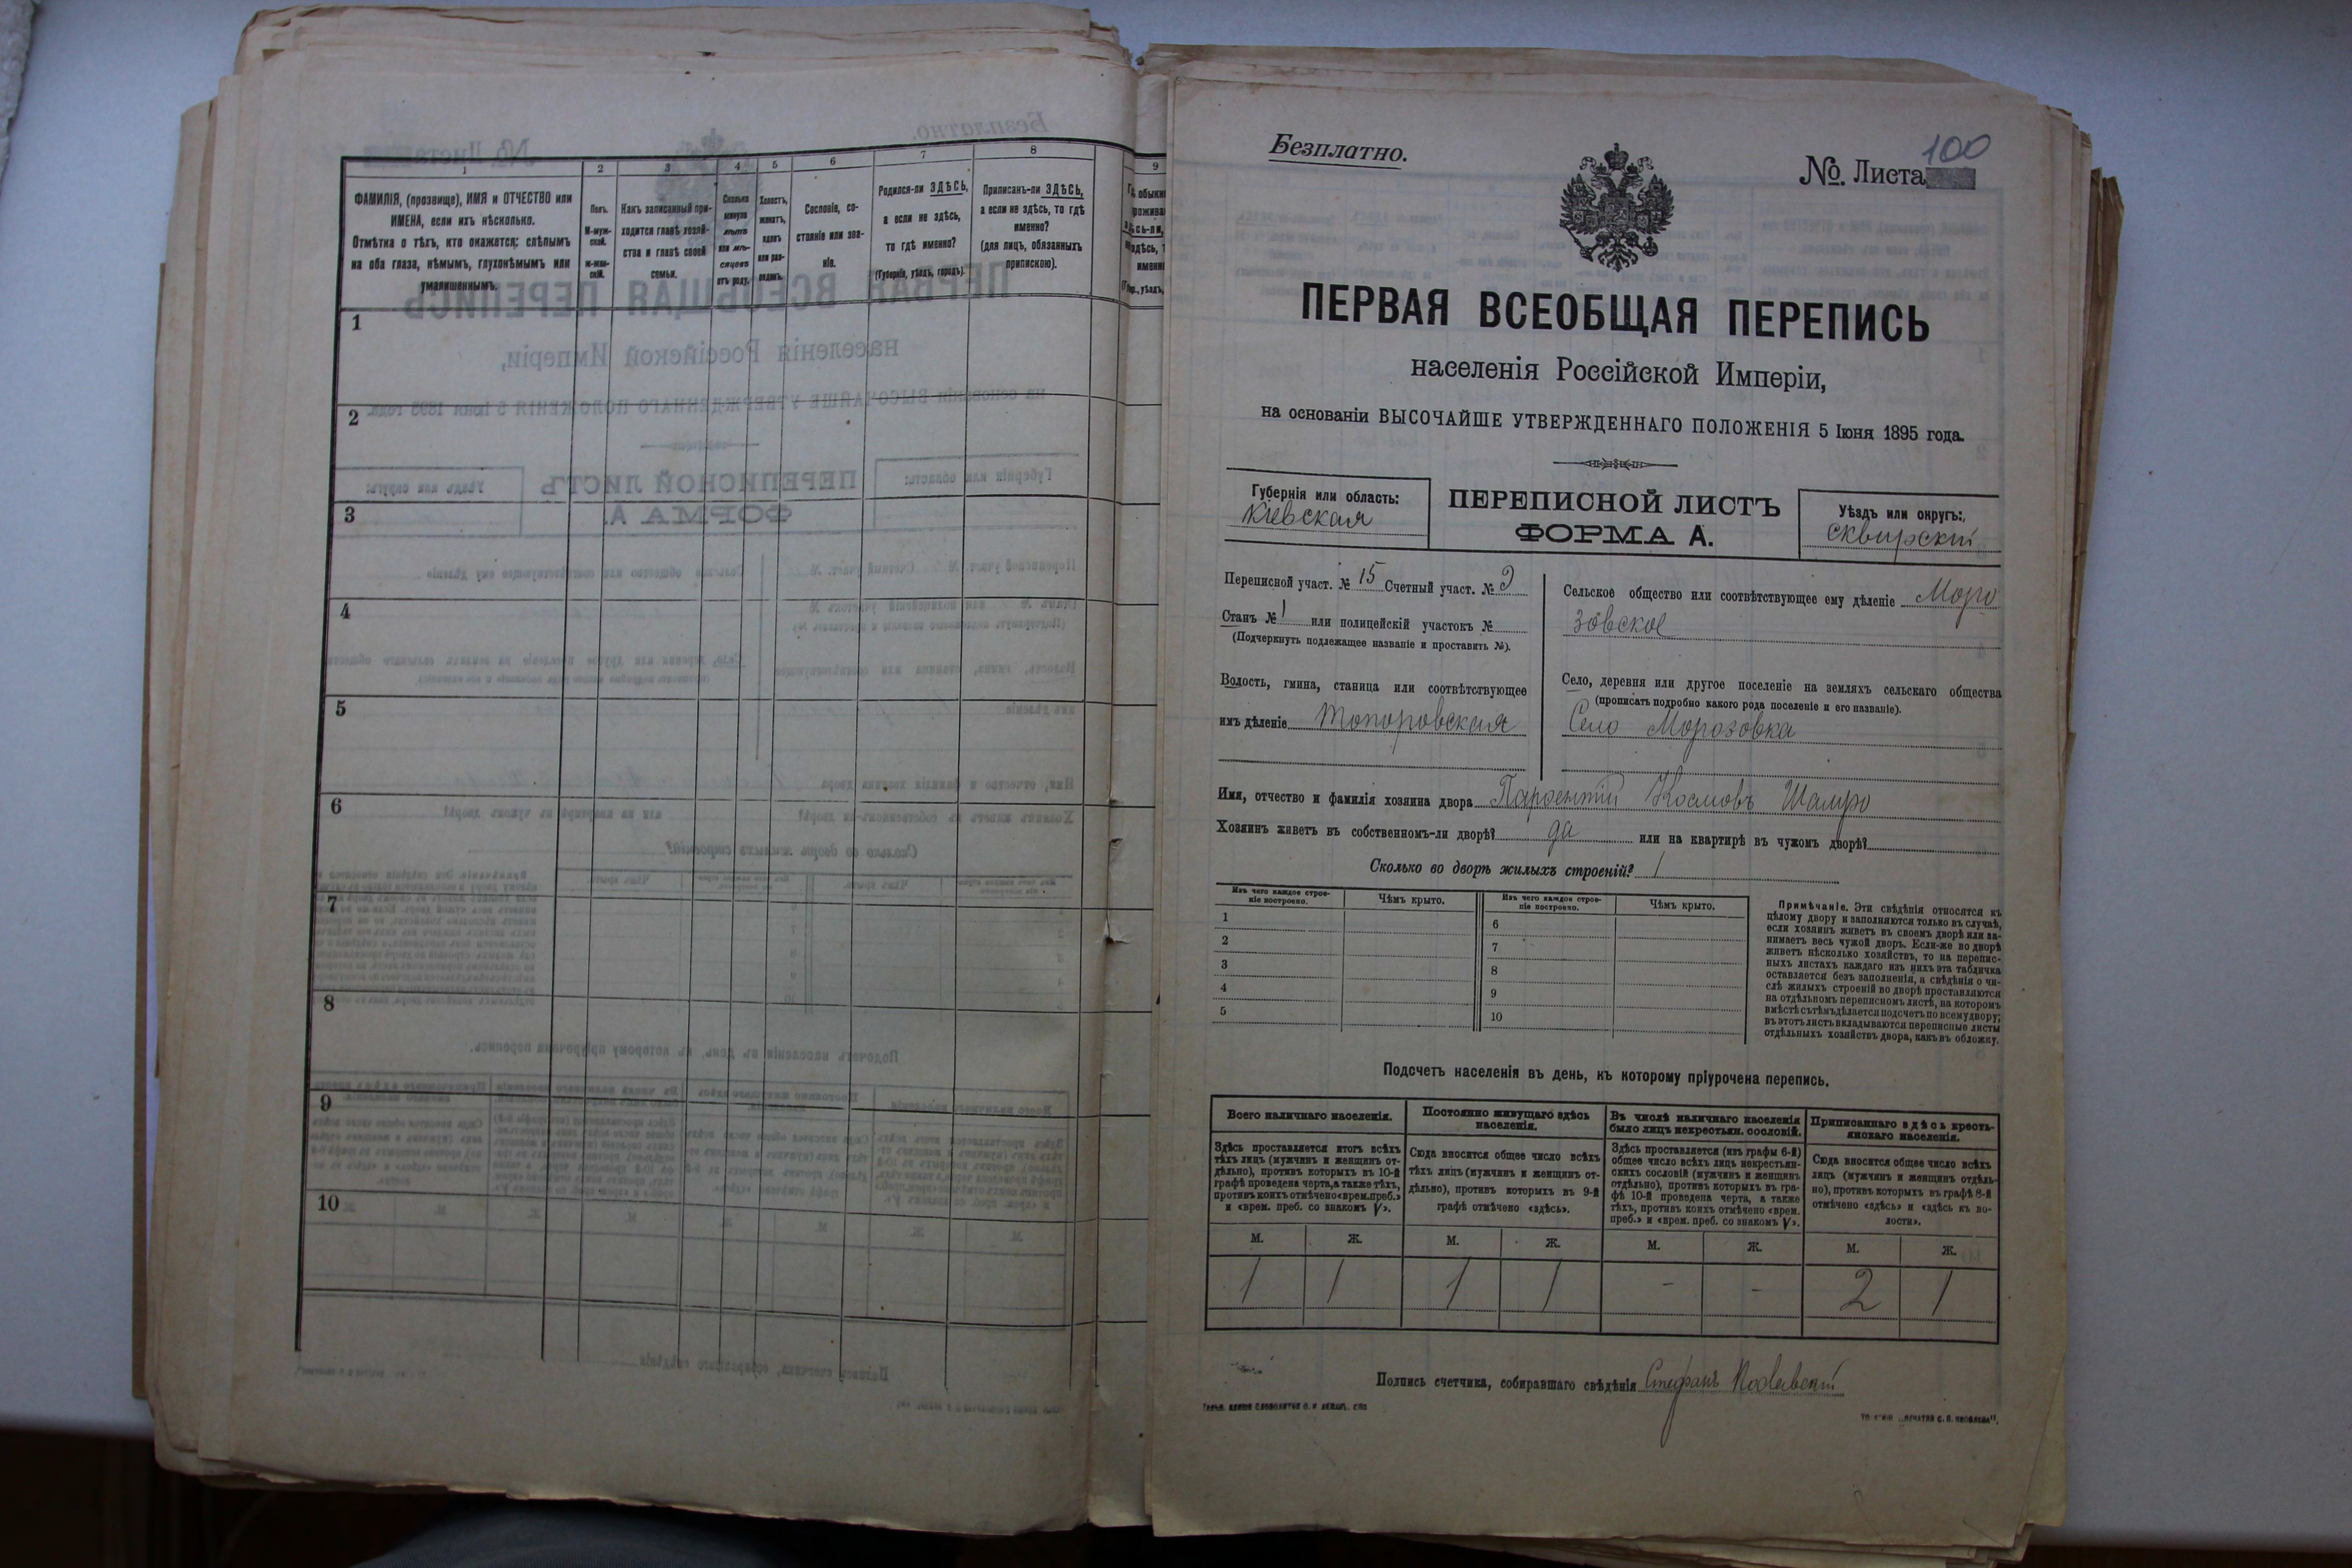 1
2
3
4
5
6
7
8
ФАМИЛІЯ, (прозвище), ИМЯ и ОТЧЕСТВО или
ИМЕНА, если ихъ нѣсколько.
Отмѣтка о тѣхъ, кто окажется: слѣпымъ
на оба глаза, нѣмымъ, глухонѣмымъ или
умалишеннымъ.
Полъ.
М-муж-
ской.
Ж-жен-
скій.
Какъ записанный при-
ходится главѣ хозяй-
ства и главѣ своей
семьи.
Сколько
минуло
лѣтъ
или мѣ-
сяцевъ
отъ роду.
Холостъ,
женатъ,
вдовъ
или раз-
веденъ.
Сословіе, со-
стояніе или зва-
ніе.
Родился-ли ЗДѢСЬ,
а если не здѣсь,
то гдѣ именно?
(Губернія, уѣздъ, городъ).
Приписанъ-ли ЗДѢСЬ,
а если не здѣсь, то гдѣ
именно?
(для лицъ, обязанныхъ
припискою).
9
1
2
3
4
5
6
7
8
9
10
Безплатно.
№ Листа 100
ПЕРВАЯ ВСЕОБЩАЯ ПЕРЕПИСЬ
населенія Россійской Имперіи,
на основаніи ВЫСОЧАЙШЕ УТВЕРЖДЕННАГО ПОЛОЖЕНІЯ 5 Іюня 1895 года.
Губернія или область:
Кіевская
ПЕРЕПИСНОЙ ЛИСТЪ
ФОРМА А.
Уѣздъ или округъ:
Сквирскій
Переписной участ. № 15 Счетный участ. №
Станъ № 1 или полицейскій участокъ №
(Подчеркнуть подлежащее названіе и проставить №).
Волость, гмина, станица или соотвѣтствующее
имъ дѣленіе Топоровская
Сельское общество или соотвѣтствующее ему дѣленіе Моро
зовское
Село, деревня или другое поселеніе на земляхъ сельскаго общества
(прописать подробно какого рода поселеніе и его названіе).
Село Морозовка
Имя, отчество и фамилія хозяина двора Парфентій Космовъ Шамро
Хозяинъ живетъ въ собственномъ-ли дворѣ? да или на квартирѣ въ чужомъ дворѣ?
Сколько во дворѣ жилыхъ строеній? 1
Изъ чего каждое строе-
ніе построено.
Чѣмъ крыто.
Изъ чего каждое строе-
ніе построено.
Чѣмъ крыто.
1
2
3
4
5
6
7
8
9
10
Примѣчаніе. Эти свѣдѣнія относятся къ
цѣлому двору и заполняются только въ случаѣ,
если хозяинъ живетъ въ своемъ дворѣ или за-
нимаетъ весь чужой дворъ. Если-же во дворѣ
живетъ нѣсколько хозяйствъ, то на перепис-
ныхъ листахъ каждаго изъ нихъ эта табличка
оставляется безъ заполненія, а свѣдѣнія о чи-
слѣ жилыхъ строеній во дворѣ проставляются
на отдѣльномъ переписномъ листѣ, на которомъ
вмѣстѣ съ тѣмъ дѣлается подсчетъ по всему двору;
въ этотъ листъ вкладываются переписные листы
отдѣльныхъ хозяйствъ двора, какъ въ обложку.
Подсчетъ населенія въ день, къ которому пріурочена перепись.
Всего наличнаго населенія.
Здѣсь проставляется итогъ всѣхъ
тѣхъ лицъ (мужчинъ и женщинъ от-
дѣльно), противъ которыхъ въ 10-й
графѣ проведена черта, а также тѣхъ,
противъ коихъ отмѣчено «врем. преб.»
и «врем. преб. со знакомъ V».
Постоянно живущаго здѣсь
населенія.
Сюда вносится общее число всѣхъ
тѣхъ лицъ (мужчинъ и женщинъ от-
дѣльно), противъ которыхъ въ 9-й
графѣ отмѣчено «здѣсь».
Въ числѣ наличнаго населенія
было лицъ некрестьян. сословій.
Здѣсь проставляется (изъ графы 6-й)
общее число всѣхъ лицъ некрестьян-
скихъ сословій (мужчинъ и женщинъ
отдѣльно), противъ которыхъ въ гра-
фѣ 10-й проведена черта, а также
тѣхъ, противъ коихъ отмѣчено «врем.
преб.» и «врем. преб. со знакомъ V».
Приписаннаго здѣсь кресть-
янскаго населенія.
Сюда вносится общее число всѣхъ
лицъ (мужчинъ и женщинъ отдѣль-
но), противъ которыхъ въ графѣ 8-й
отмѣчено «здѣсь» и «здѣсь къ во-
лости».
М. Ж. М. Ж. М. Ж. М. Ж.
1 1 1 1 - - 2 1
Подпись счетчика, собиравшаго свѣдѣнія Стефанъ